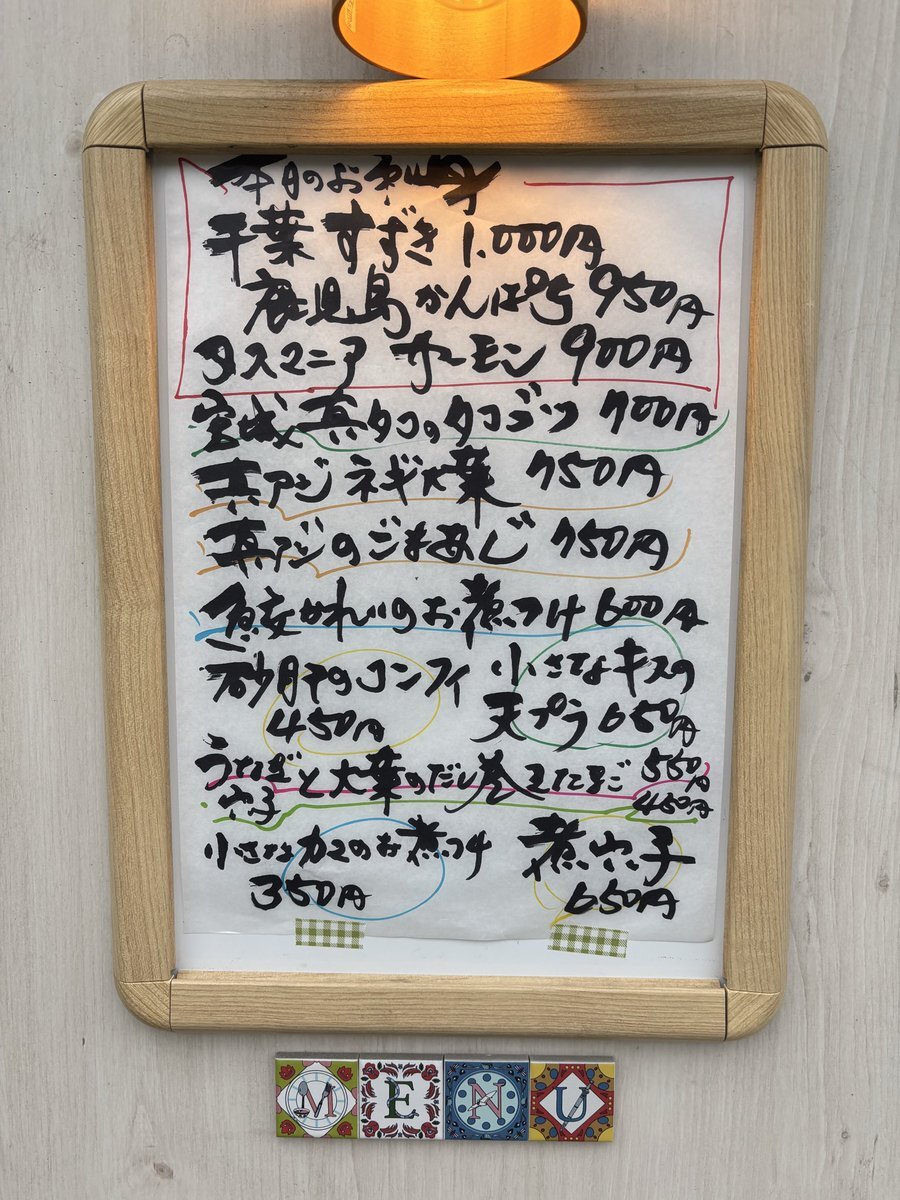 本日のお刺身
千葉 すずき 1.000円
鹿児島 かんぱち 950円
タスマニア サーモン 900円
宮城 真タコのタコブツ 700円
真アジ ネギ大葉 750円
真アジのごまあじ 750円
魚安かれいのお煮つけ 600円
砂肝のコンフィ 450円
小さなキスの天プラ 650円
うなぎと大葉のだし巻きたまご 550円
穴子 450円
小さなカマのお煮つけ
350円
煮穴子
650円
MENU